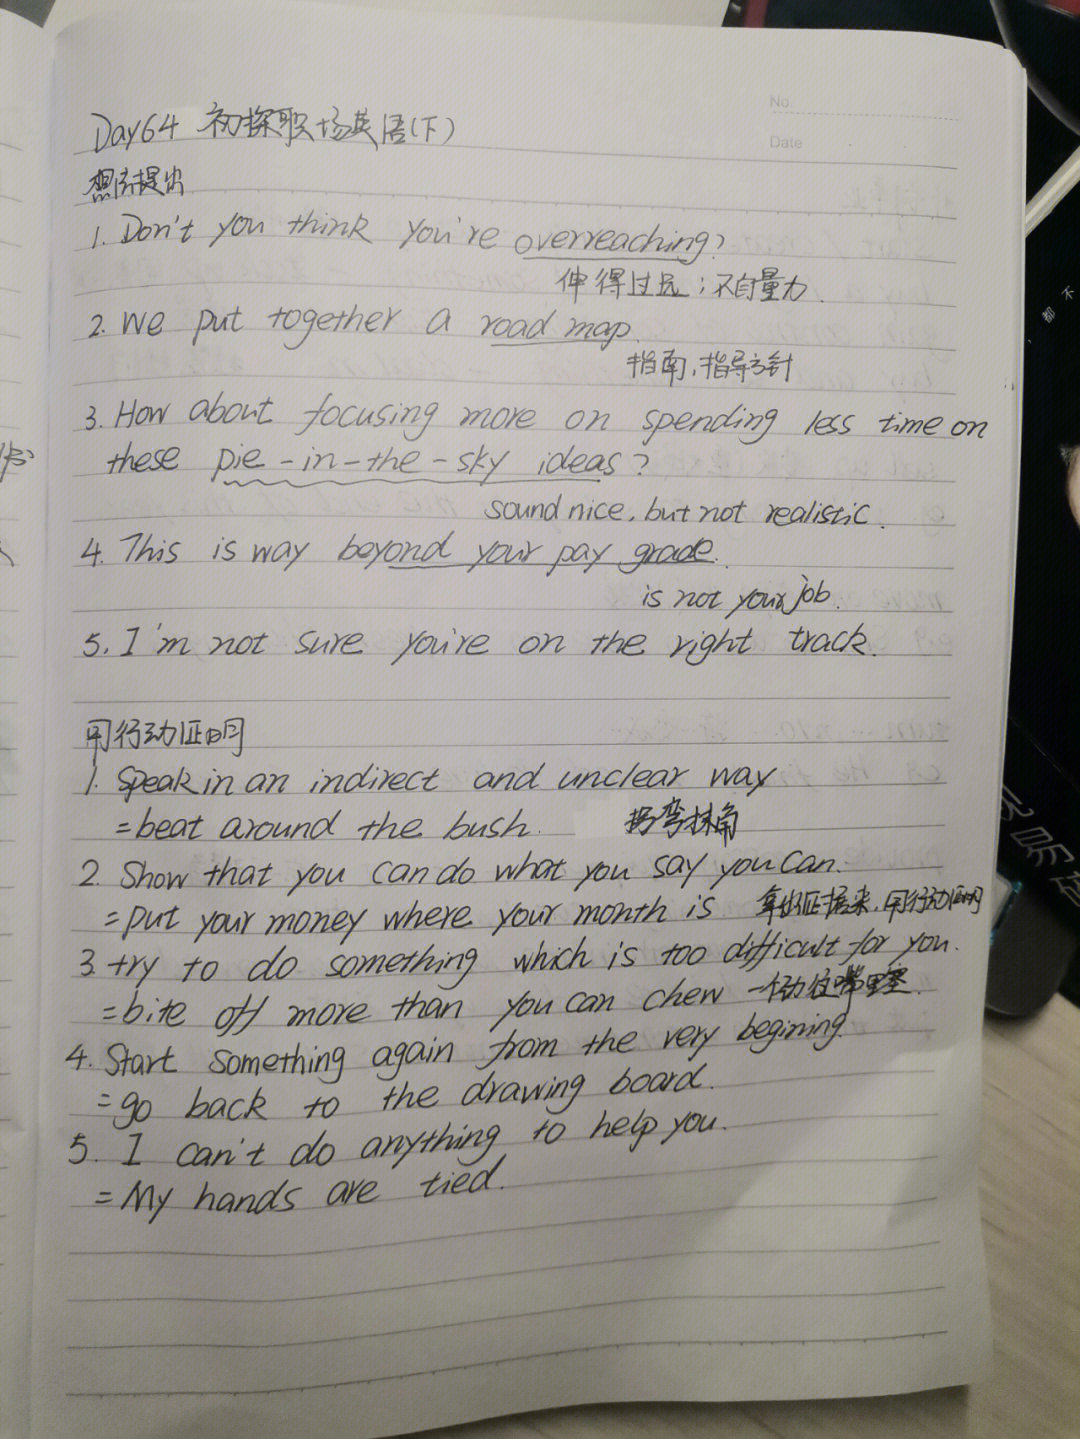 No.
Date
Day64 初探职场英语(下)
想法提出
1. Don't you think you're overreaching?
伸得过远；不自量力.
2. We put together a road map.
指南,指导方针
3. How about focusing more on spending less time on
these pie-in-the-sky ideas?
sound nice, but not realistic.
4. This is way beyond your pay grade.
is not your job.
5. I'm not sure you're on the right track.
用行动证明
1. Speak in an indirect and unclear way
=beat around the bush. 拐弯抹角
2. Show that you can do what you say you can.
=put your money where your month is 拿出证据来,用行动证明
3. try to do something which is too difficult for you.
=bite off more than you can chew
4. Start something again from the very begining.
=go back to the drawing board.
5. I can't do anything to help you.
=My hands are tied.
都不